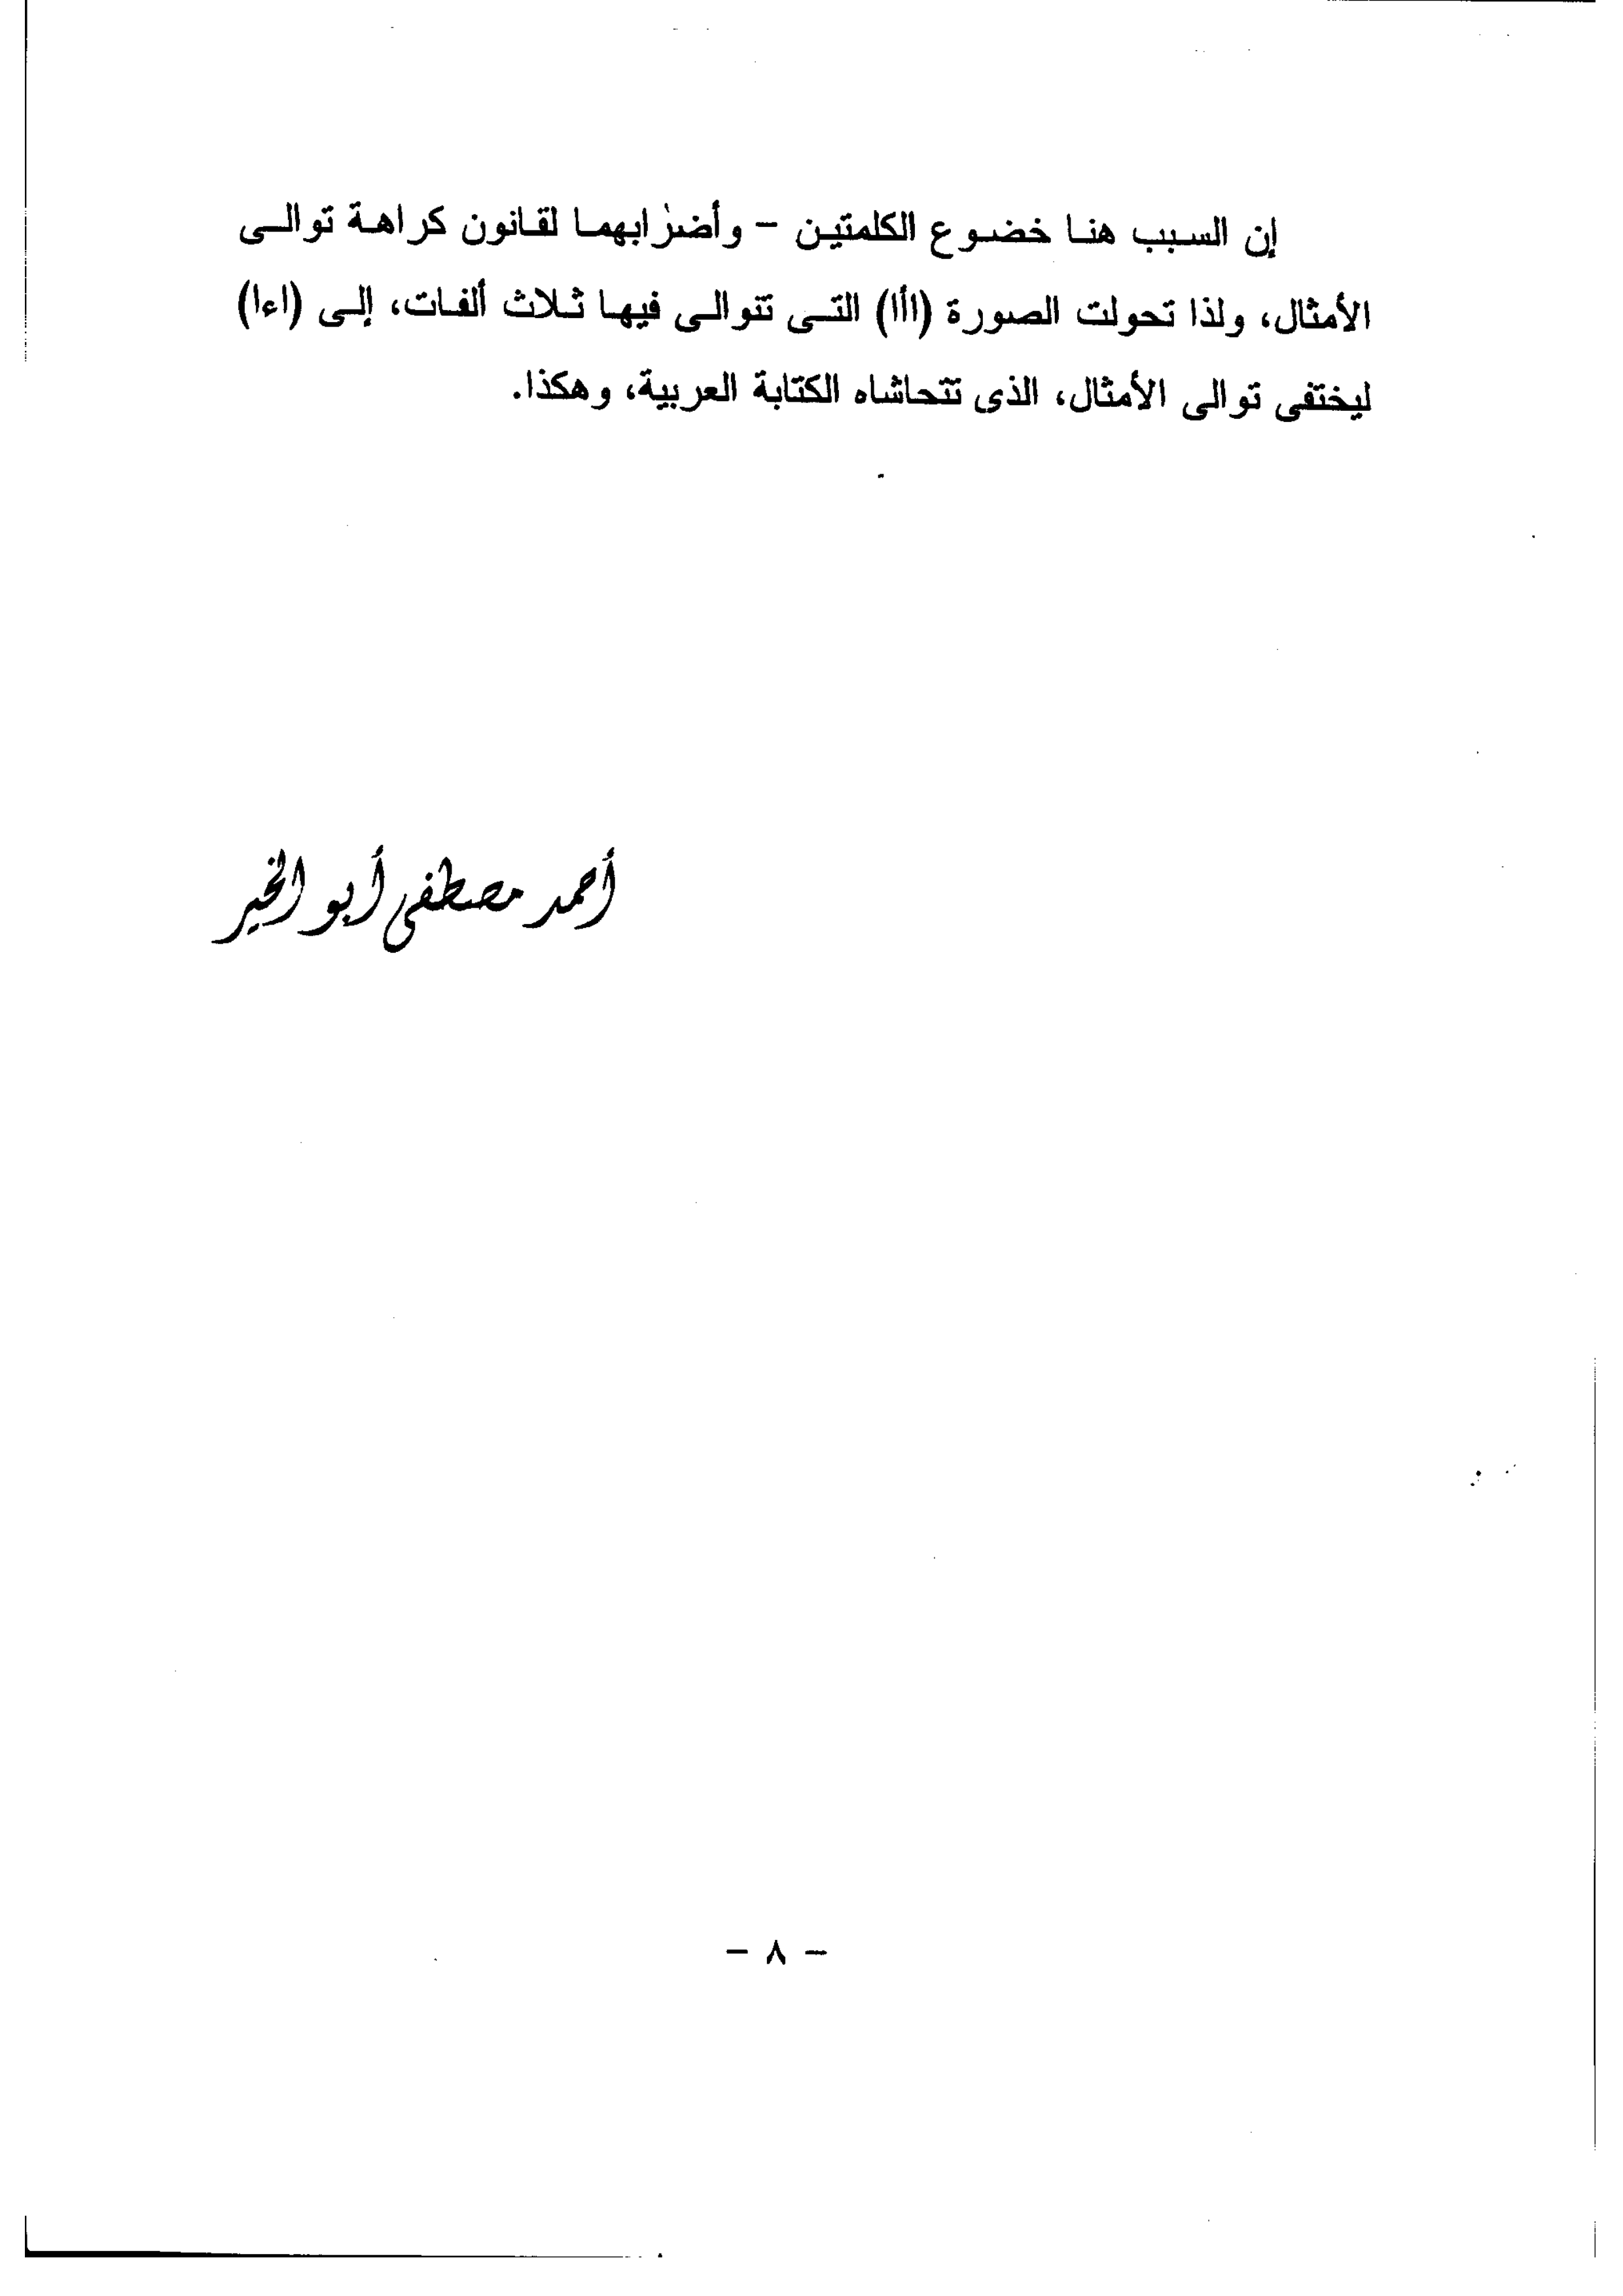 إن السبب هنا خضوع الكلمتين – وأضرابهما لقانون كراهة توالى
الأمثال، ولذا تحولت الصورة (اأا) التى تتوالى فيها ثلاث ألفات، إلى (اءا)
ليختفى توالى الأمثال، الذى تتحاشاه الكتابة العربية، وهكذا.
أحمد مصطفى أبو الخير
– ٨ –